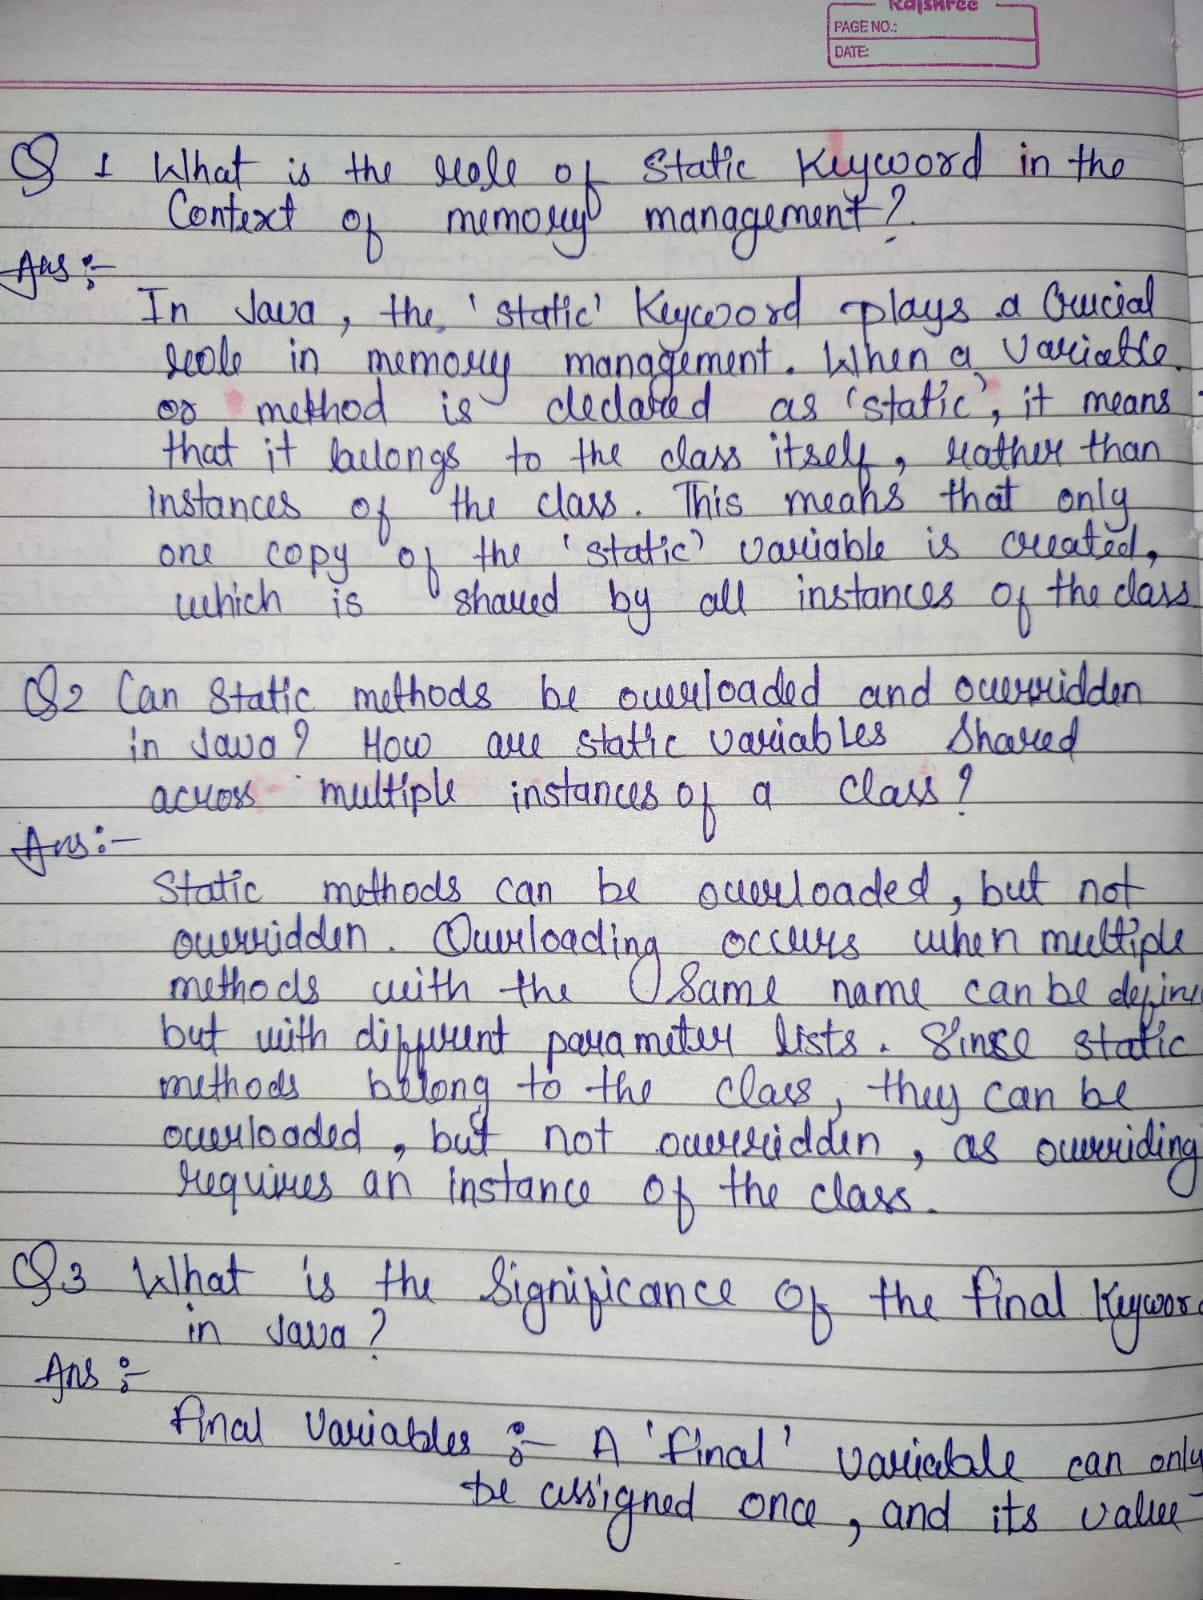 Rajshree
PAGE NO.:
DATE:
Q 1 What is the role of Static Keyword in the
Context of memory management?
Ans :-
In Java, the 'static' Keyword plays a Crucial
role in memory management. When a Variable
or method is declared as 'static', it means
that it belongs to the class itself, rather than
instances of the class. This means that only
one copy of the 'static' variable is created,
which is shared by all instances of the class
Q2 Can Static methods be overloaded and overridden
in Java? How are static variables Shared
across multiple instances of a class?
Ans :-
Static methods can be overloaded, but not
overridden. Overloading occurs when multiple
methods with the Same name can be define
but with different parameter lists. Since static
methods belong to the class, they can be
overloaded, but not overridden, as overriding
requires an instance of the class.
Q3 What is the Significance of the final Keywor
in Java?
Ans :-
final Variables :- A 'final' variable can only
be assigned once, and its value